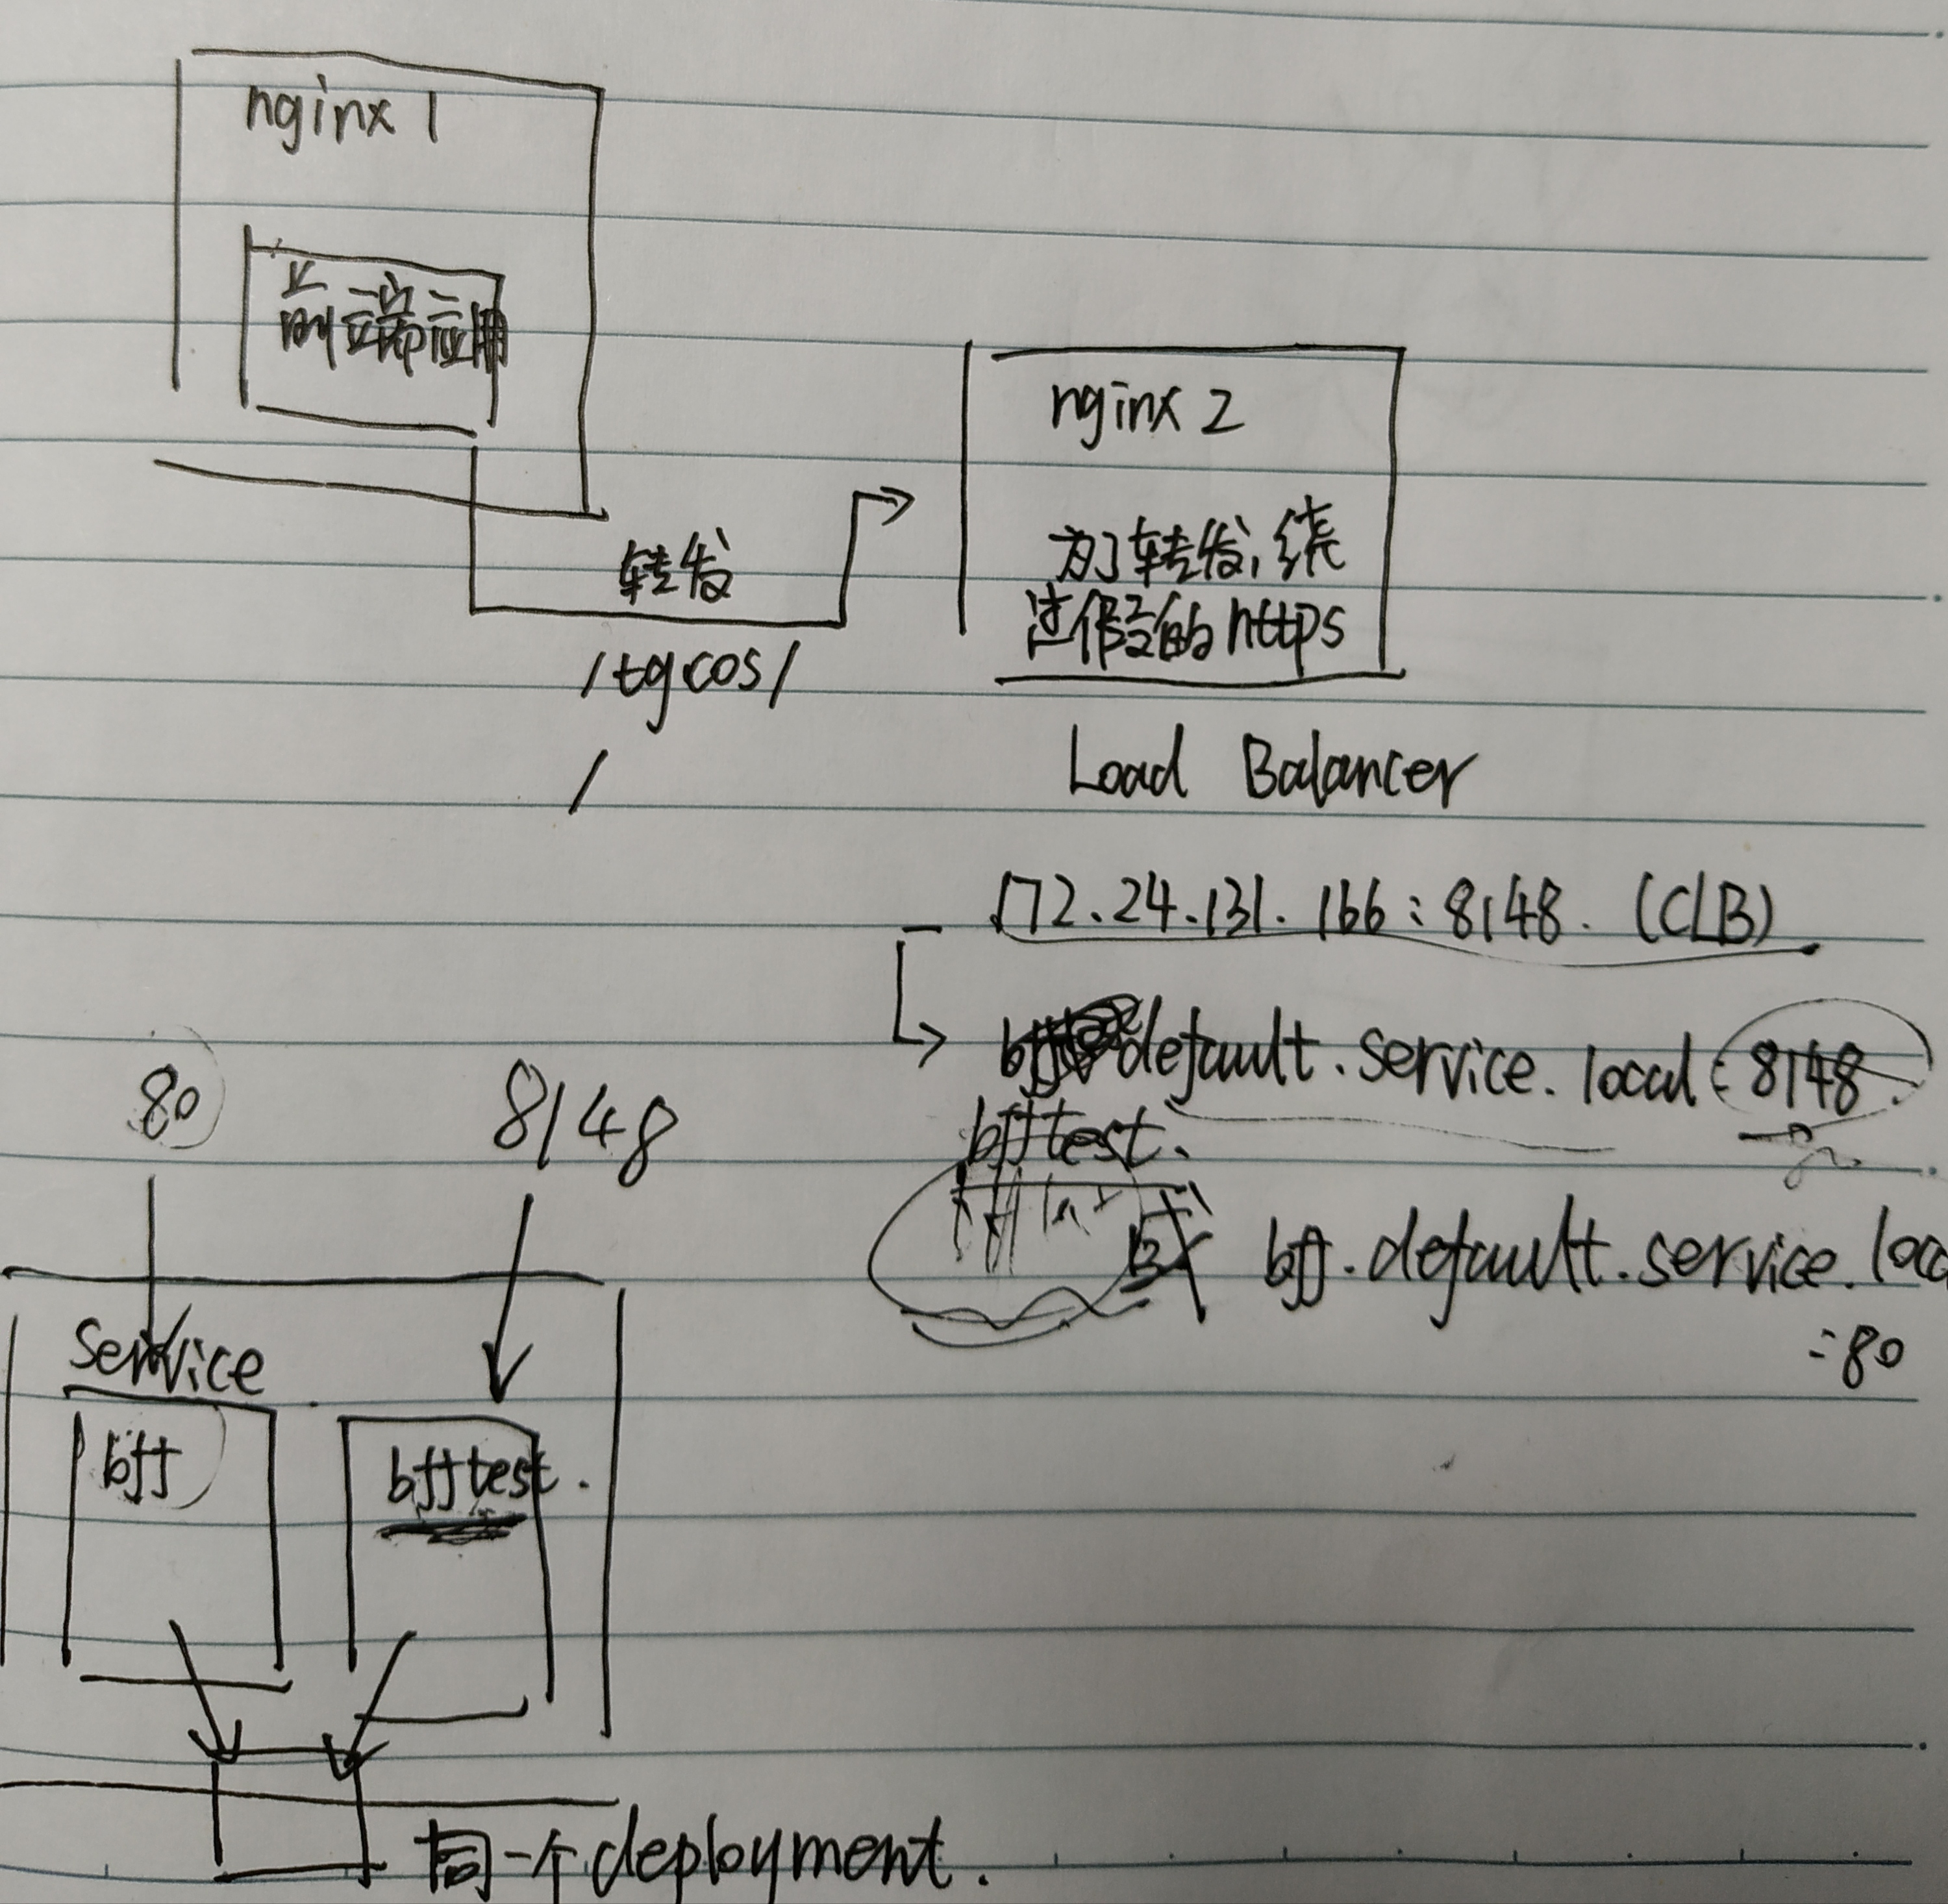 nginx 1
前端应用
转发
/tgcos/
/
nginx 2
为了转发,绕
过假的https
Load Balancer
172.24.131.166:8148. (CLB)
default.service.local:8148.
bfftest.
或 bff.default.service.loc
:80
80
8148
service
bff
bfftest.
同一个deployment.